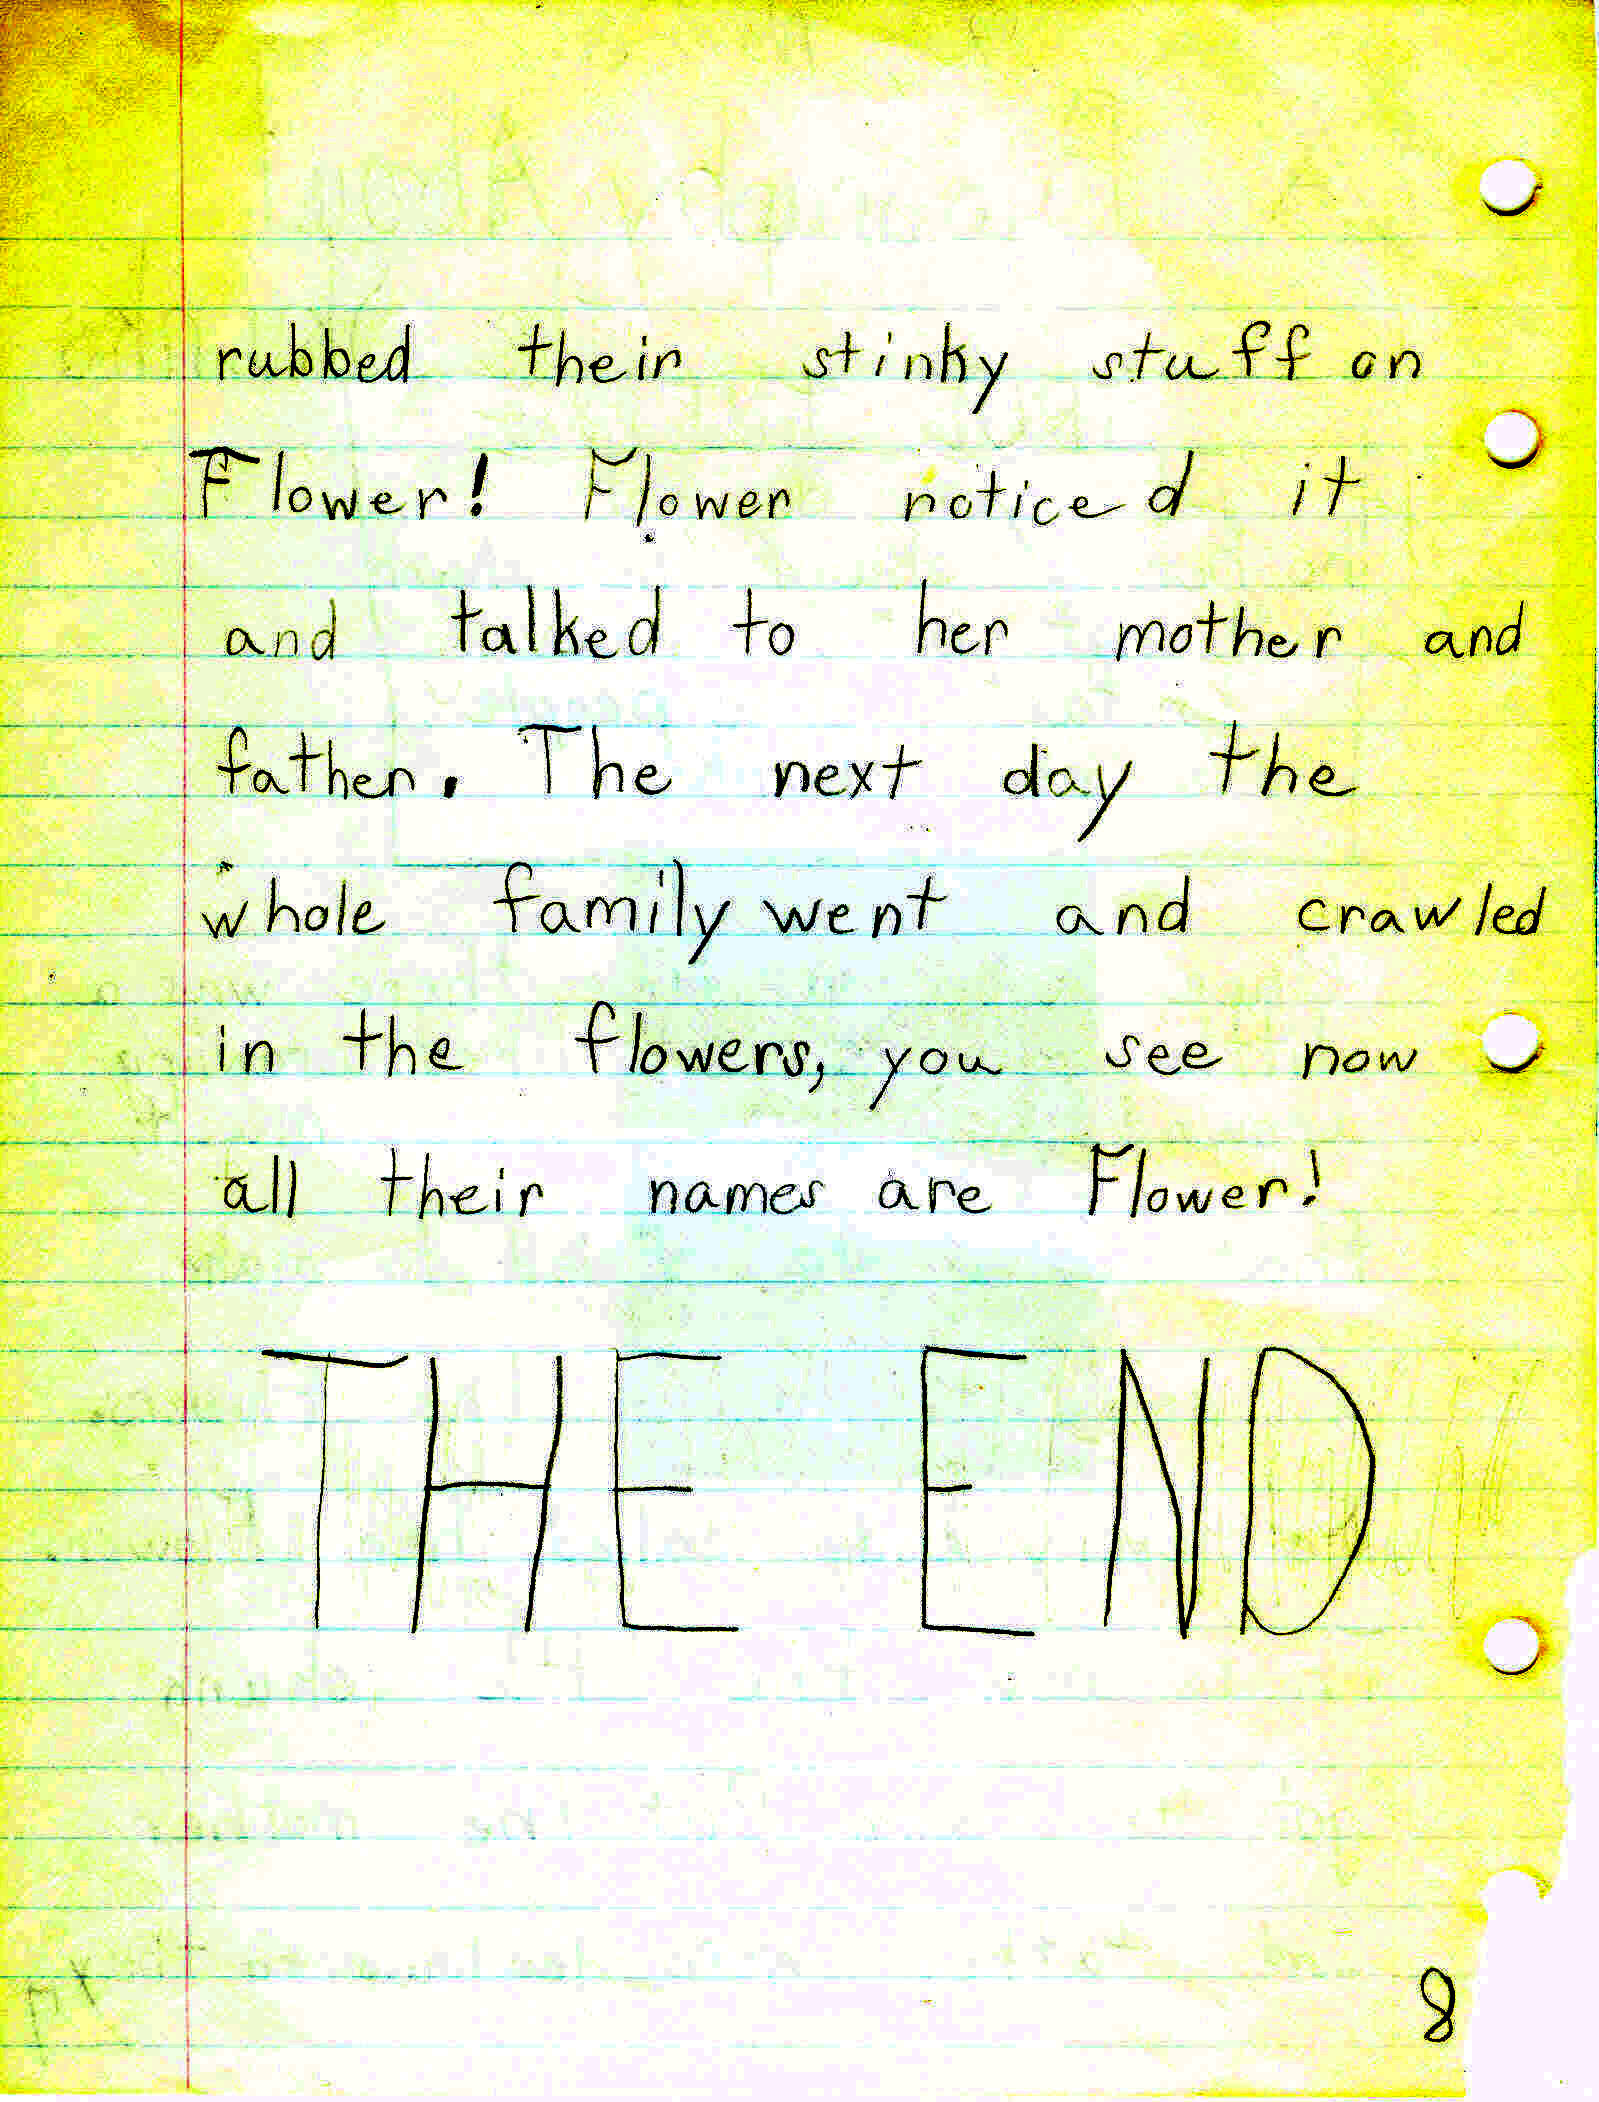 rubbed their stinky stuff on
Flower! Flower noticed it
and talked to her mother and
father. The next day the
whole family went and crawled
in the flowers, you see now
all their names are Flower!
THE END
8